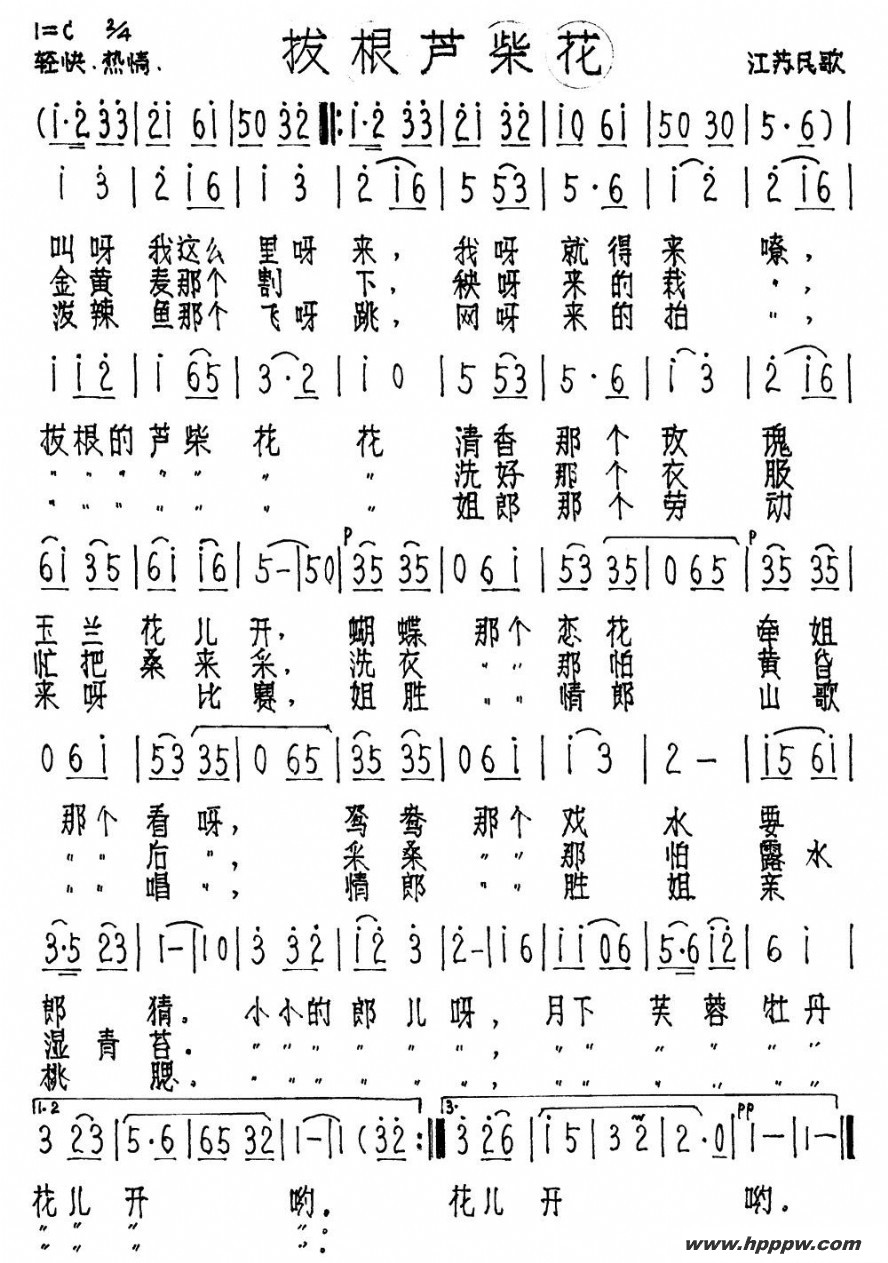 1=C 2/4
拔根芦柴花
轻快、热情.
江苏民歌
(i·2 33|2i 6i|50 32‖:i·2 33|2i 32|i0 6i|50 30|5·6)|
i 3|2 i6|i 3|2 i6|5 53|5·6|i 2|2 i6|
叫呀 我这么 里呀来, 我呀 就得来 嘹,
金黄 麦那个 割 下, 秧呀 来的栽 〃,
泼辣 鱼那个 飞呀跳, 网呀 来的拍 〃,
i i2|i 65|3·2|i 0|5 53|5·6|i 3|2 i6|
拔根的芦柴 花 花 清香 那个玫 瑰
〃 〃 〃 〃 〃 〃 〃 洗好 那个衣 服
〃 〃 〃 〃 〃 〃 〃 姐郎 那个劳 动
6i 35|6i i6|5-|50|p 35 35|0 6 i|53 35|0 65|p 35 35|
玉兰 花儿开, 蝴蝶 那个 恋花 牵姐
忙把 桑来采, 洗衣 〃 〃 那怕 黄昏
来呀 比赛, 姐胜 〃 〃 情郎 山歌
0 6 i|53 35|0 65|35 35|0 6 i|i 3|2 -|i5 6i|
那个 看呀, 鸳鸯 那个 戏 水 要
〃 〃 后 〃, 采桑 〃 〃 那 怕 露水
〃 〃 唱 〃, 情郎 〃 〃 胜 姐 亲
3·5 23|1-|10|3 32|i2 3|2-|i 6|ii06|5·6 i2|6 i|
郎 猜. 小小的郎儿呀, 月下 芙蓉 牡丹
湿青苔. 〃 〃 〃 〃 〃 〃, 〃 〃 〃 〃 〃 〃
桃腮. 〃 〃 〃 〃 〃 〃, 〃 〃 〃 〃 〃 〃
1.2 3 23|5·6|65 32|1-|1 (32:‖3. 3 26|i5|32|2·0|pp 1-|1-‖
花儿开 哟. 花儿开 哟.
〃 〃 〃 〃.
www.hpppw.com